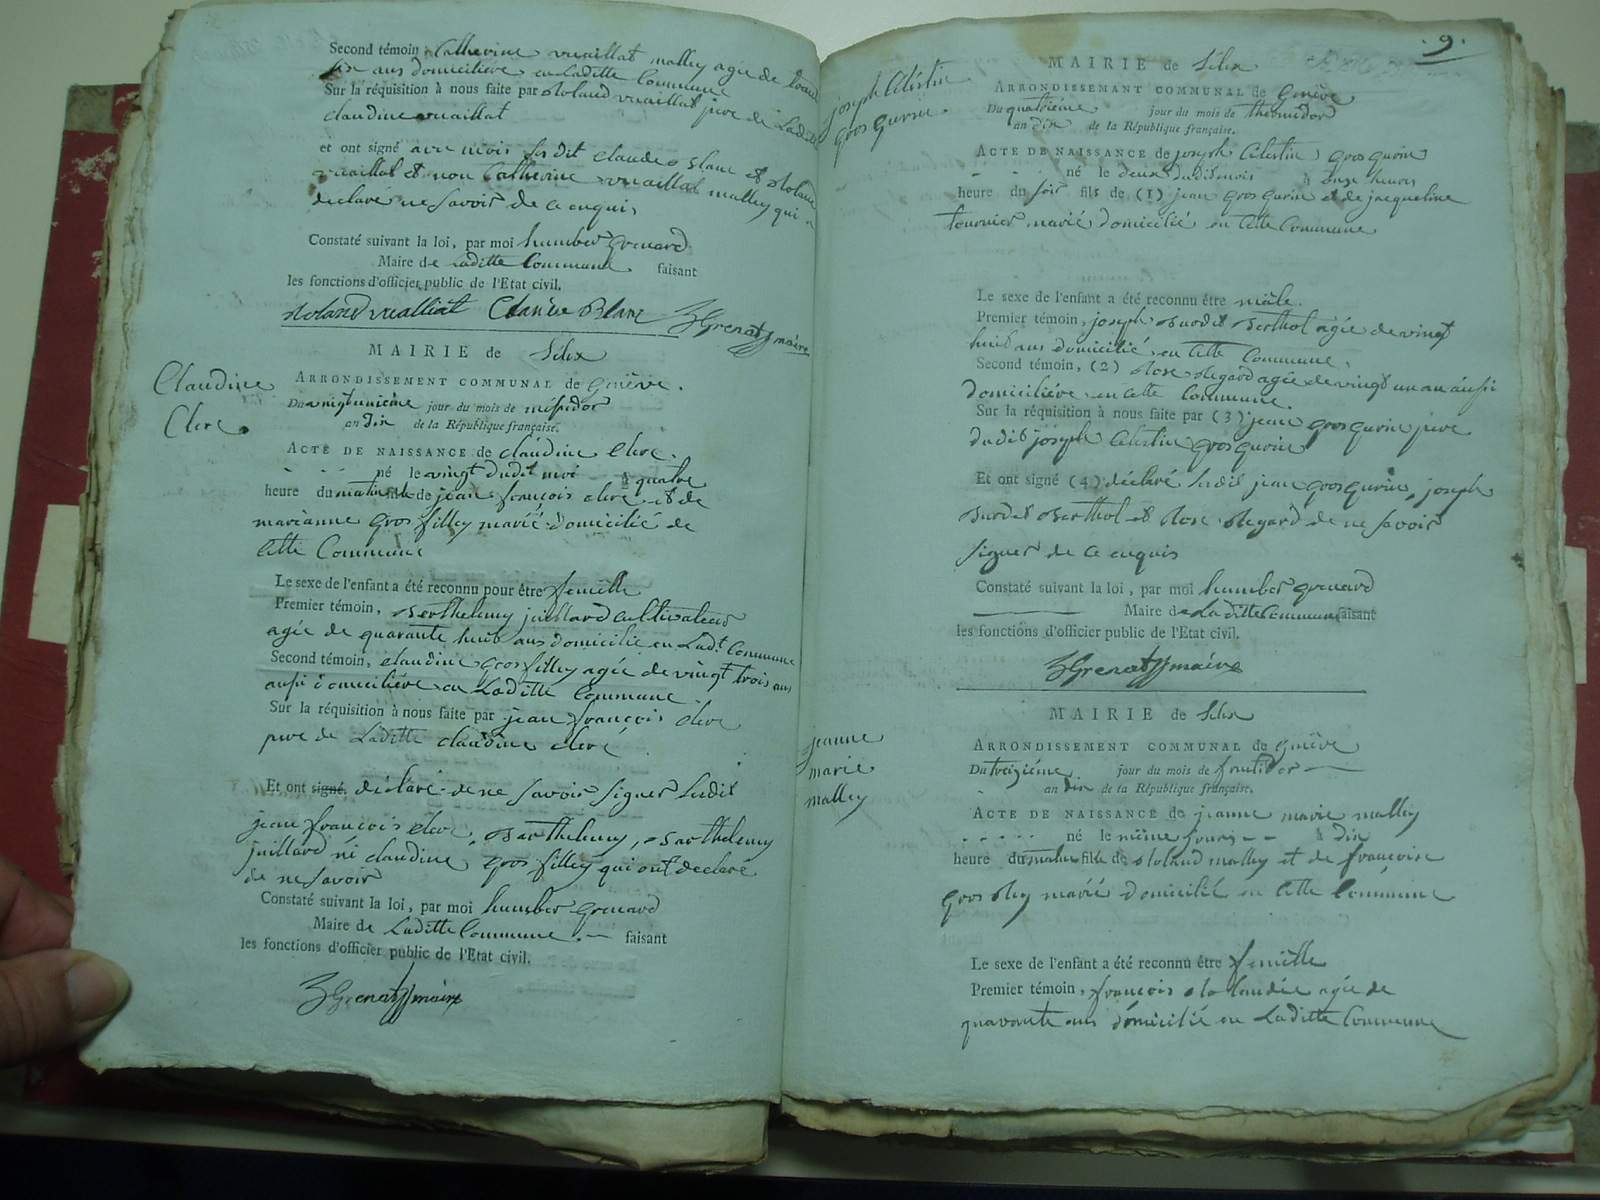 Second témoin, Catherine vuaillat malley agée de trente
six ans domiciliére en laditte Commune
Sur la réquisition à nous faite par Roland vuaillat pere de Ladite
claudine vuaillat
et ont signé avec mois les dit claude Blanc et Roland
vuaillat et non Catherine vuaillat malley qui a
déclaré ne savoir de ce enquis
Constaté suivant la loi, par moi humber grenard
Maire de Laditte Commune faisant
les fonctions d'officier public de l'Etat civil.
Roland vualliat Claude Blanc hGrenat maire
MAIRIE de Silex
Claudine
Clerc
ARRONDISSEMENT COMMUNAL de Genêve.
Du vingtunième jour du mois de méssidor
an dix de la République française.
ACTE DE NAISSANCE de claudine clerc.
né le vingt dudit moi à quatre
heure du matin fille de jean françois clerc et de
marianne gros filley marié domicilié de
Cette Commune
Le sexe de l'enfant a été reconnu pour être femelle
Premier témoin, Berthelemy juillard cultivateur
agée de quarante huit ans domicilié en Lad.t Commune
Second témoin, claudine gros filley agée de vingt trois ans
aussi domiciliére en Laditte Commune
Sur la réquisition à nous faite par jean françois clerc
pere de Laditte claudine clerc
Et ont signé. déclaré de ne savoir signer Ledit
jean françois clerc, Barthelemy, Barthelemy
juillard ni claudine gros filley qui ont declaré
de ne savoir
Constaté suivant la loi, par moi humber grenard
Maire de Laditte Commune. faisant
les fonctions d'officier public de l'Etat civil.
hGrenat maire
.9.
joseph Célestin
gros gurin.
MAIRIE de Silex
ARRONDISSEMENT COMMUNAL de Genêve
Du quatriéme jour du mois de thermidor
an dix de la République française.
ACTE DE NAISSANCE de joseph Célestin gros gurin
né le deux dudit mois à onze heures
heure du soir fils de (1) jean gros gurin et de jacqueline
tournier marié domicilié en Cette Commune
Le sexe de l'enfant a été reconnu être mâle.
Premier témoin, joseph Berthol agée de vingt
huit ans domicilié en Cette Commune.
Second témoin, (2) Rose Regard agée de vingt un an aussi
domiciliére en cette Commune.
Sur la réquisition à nous faite par (3) jean gros gurin pere
dudit joseph Célestin gros gurin
Et ont signé (4) déclaré Ledit jean gros gurin, joseph
Berthol et Rose Regard de ne savoir
signer de ce enquis
Constaté suivant la loi, par moi humber grenard
Maire de Laditte Commune faisant
les fonctions d'officier public de l'Etat civil.
hGrenat maire
MAIRIE de Silex
jeanne
marie
malley
ARRONDISSEMENT COMMUNAL de Genêve
Du treiziéme jour du mois de fructidor
an dix de la République française.
ACTE DE NAISSANCE de jeanne marie malley
né le même jour à dix
heure du matin fille de Roland malley et de françoise
gros marié domicilié en Cette Commune
Le sexe de l'enfant a été reconnu être femelle
Premier témoin, françois agée de
quarante ans domicilié en Laditte Commune